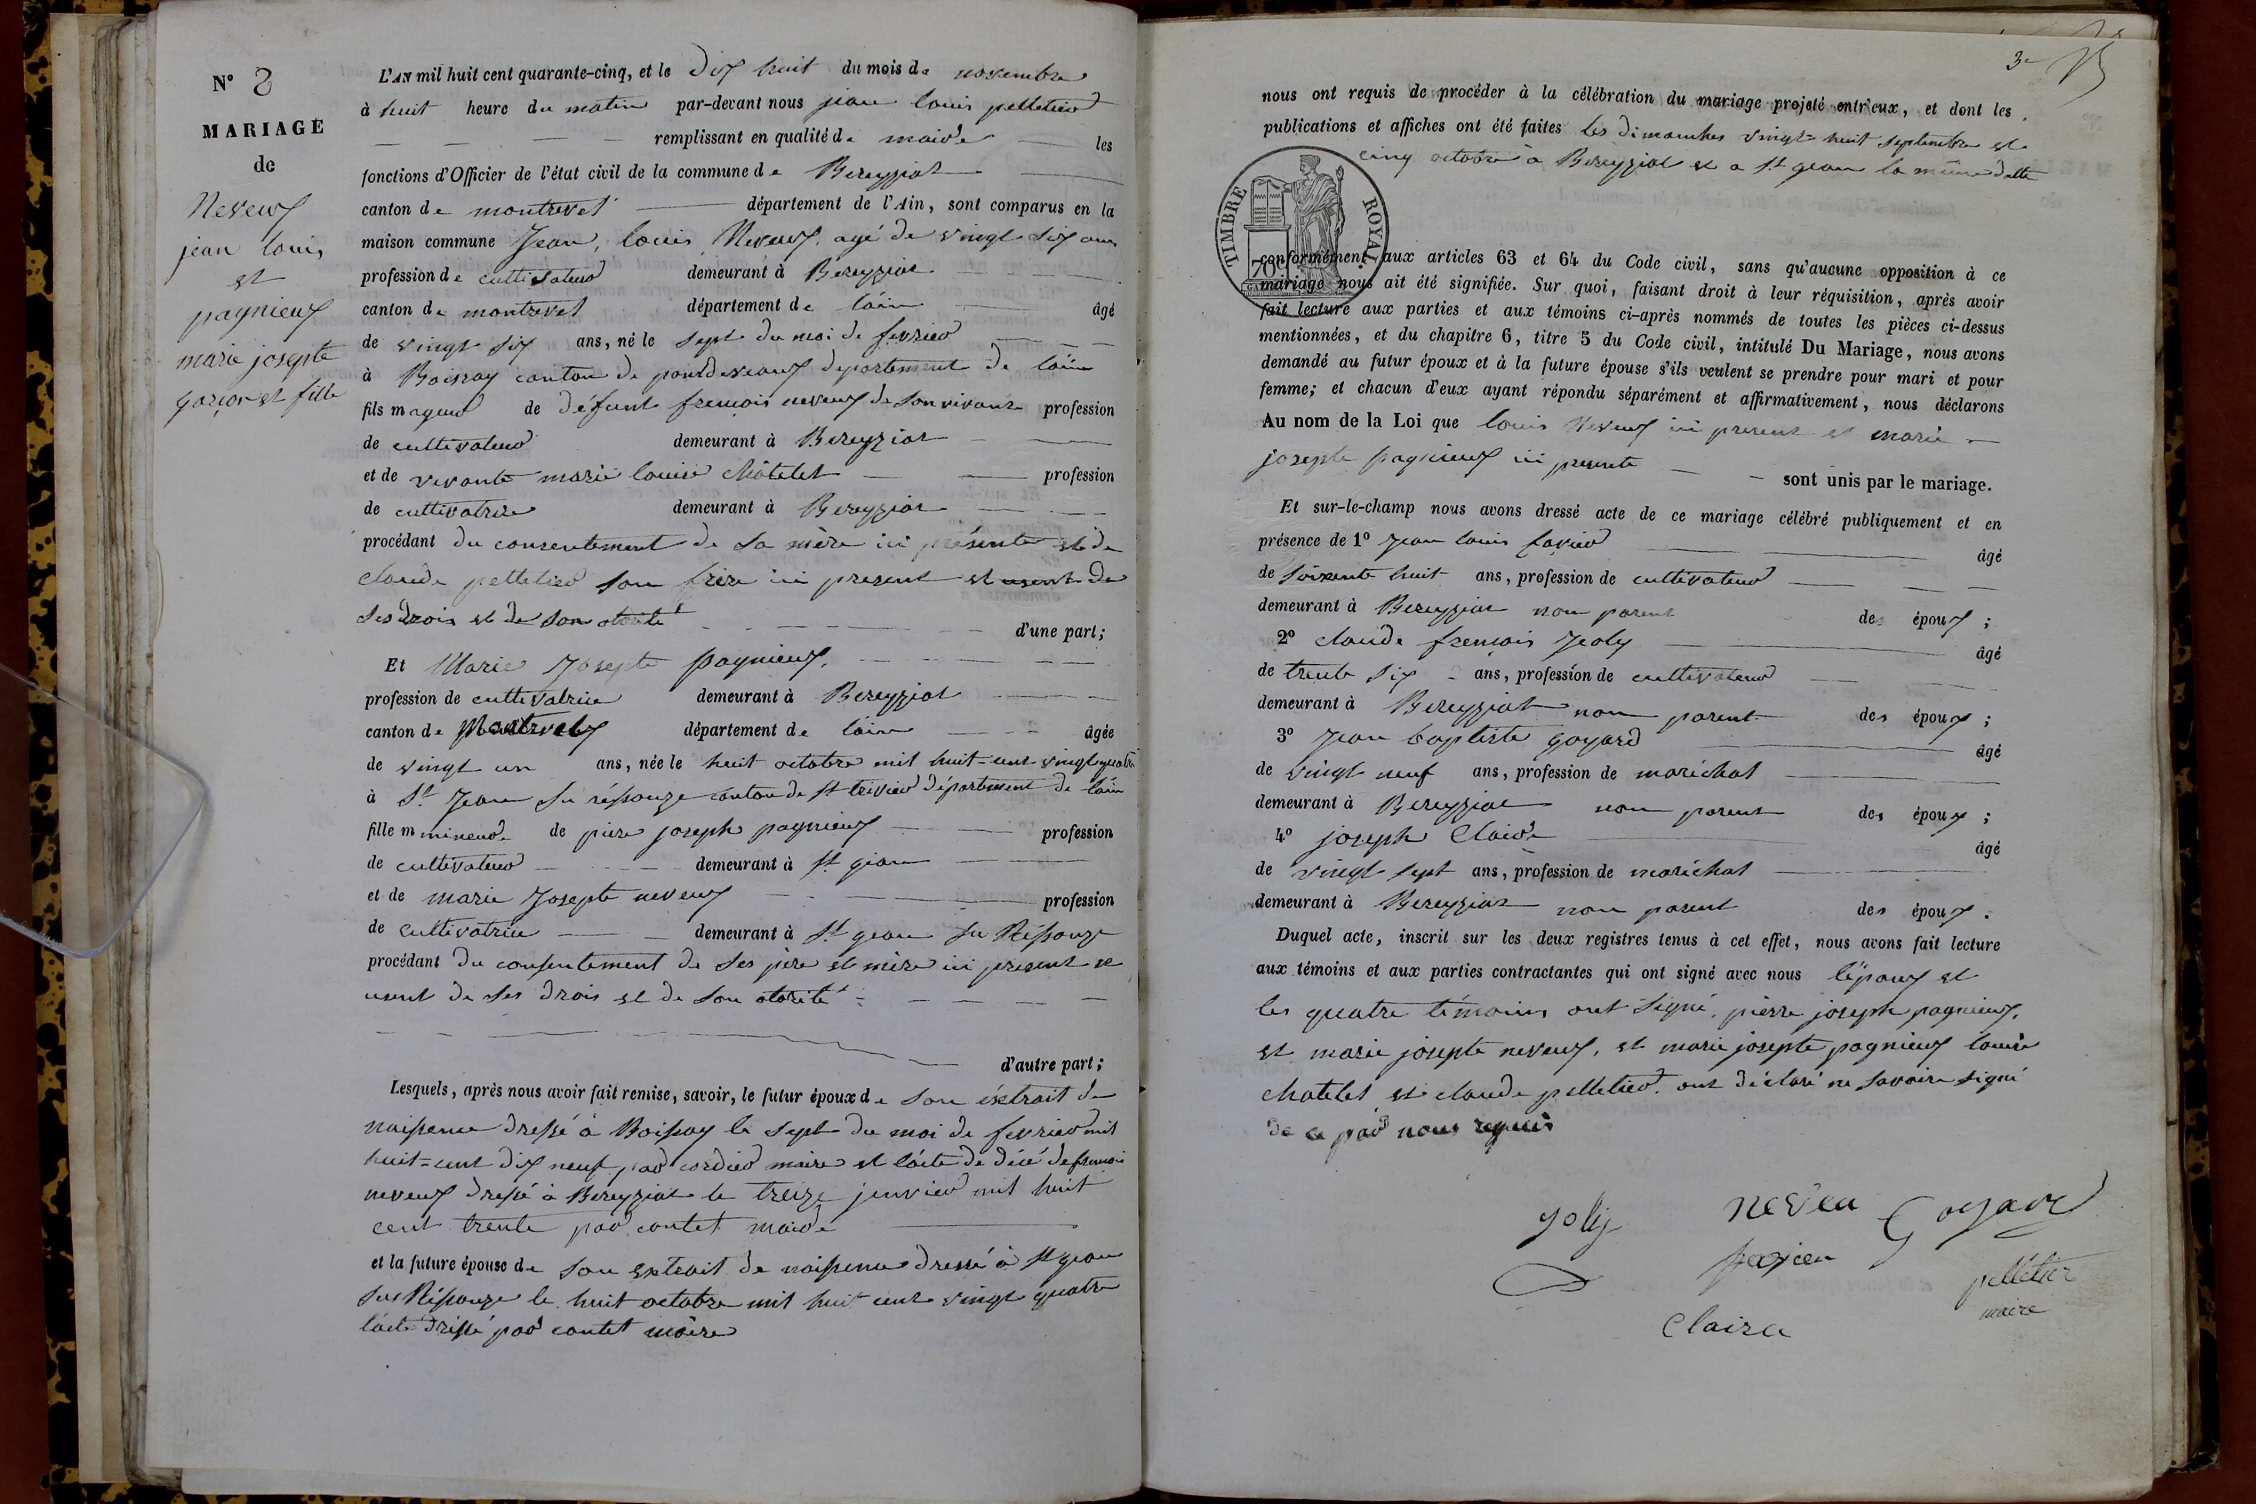 N° 8
MARIAGE
de
Neveux
jean louis
et
pagnieux
marie josepte
garçon et fille
L'AN mil huit cent quarante-cinq, et le dix huit du mois de novembre
à huit heure du matin par-devant nous jean louis pelletier
remplissant en qualité de maire les
fonctions d'Officier de l'état civil de la commune de Bereyziat
canton de montrevel département de l'Ain, sont comparus en la
maison commune Jean, louis Neveux, agé de vingt six ans
profession de cultivateur demeurant à Bereyziat
canton de montrevel département de láin âgé
de vingt six ans, né le sept du moi de fevrier
à Boissay canton de pontdeveaux departement de láin
fils mageur de défunt francois neveux de son vivant profession
de cultivateur demeurant à Bereyziat
et de vivante marie louise châtelet profession
de cultivatrice demeurant à Bereyziat
procédant du consentement de sa mère ici présente et de
claude pelletier son frère ici present et usent de
ses drois et de son otorité d'une part;
Et Marie Josepte pagnieux,
profession de cultivatrice demeurant à Bereyziat
canton de Montrevel département de láin âgée
de vingt un ans, née le huit octobre mil huit-cent-vingt quatre
à St Jean su réssouze canton de st trivier département de láin
fille m mineure de piere joseph pagnieux profession
de cultivateur demeurant à St gean
et de marie Josepte neveux profession
de cultivatrice demeurant à St gean su Réssouze
procédant du consentement de ses père et mère ici present et
usent de ses drois et de son otorité
d'autre part;
Lesquels, après nous avoir fait remise, savoir, le futur époux de son éxtrait de
naissence dressé à Boissay le sept du moi de fevrier mil
huit=cent dix neuf par cordier maire et lácte de décé de francoi
neveux dressé à Bereyziat le treize janvier mil huit
cent trente par contet maire
et la future épouse de son extrait de naissence dressé à St gean
sur Réssouze le huit octobre mil huit cent vingt quatre
lácte dréssé par contet maire
3e
nous ont requis de procéder à la célébration du mariage projeté entr'eux, et dont les
publications et affiches ont été faites les dimanches vingt-huit septembre et
cinq octobre à Bereyziat et a St gean la même datte
TIMBRE ROYAL
70
conformément aux articles 63 et 64 du Code civil, sans qu'aucune opposition à ce
mariage nous ait été signifiée. Sur quoi, faisant droit à leur réquisition, après avoir
fait lecture aux parties et aux témoins ci-après nommés de toutes les pièces ci-dessus
mentionnées, et du chapitre 6, titre 5 du Code civil, intitulé Du Mariage, nous avons
demandé au futur époux et à la future épouse s'ils veulent se prendre pour mari et pour
femme; et chacun d'eux ayant répondu séparément et affirmativement, nous déclarons
Au nom de la Loi que louis Neveux ici present et marie
josepte pagnieux ici presente sont unis par le mariage.
Et sur-le-champ nous avons dressé acte de ce mariage célébré publiquement et en
présence de 1° Jean louis favier âgé
de soixente huit ans, profession de cultivateur
demeurant à Bereyziat non parent des époux;
2° claude francois Joly âgé
de trente six ans, profession de cultivateur
demeurant à Bereyziat non parent des époux;
3° Jean baptiste goyard âgé
de vingt neuf ans, profession de maréchal
demeurant à Bereyziat non parent des époux;
4° joseph Claire âgé
de vingt sept ans, profession de maréchal
demeurant à Bereyziat non parent des époux.
Duquel acte, inscrit sur les deux registres tenus à cet effet, nous avons fait lecture
aux témoins et aux parties contractantes qui ont signé avec nous l'époux et
les quatre témoins ont signé, pièrre joseph pagnieux,
et marie josepte neveux, et marie josepte pagnieux louise
chatelet et claude pelletier. ont déclaré ne savoire signé
de ce par nous requis
Joly neveu Goyard
favier
pelletier
maire
Claire